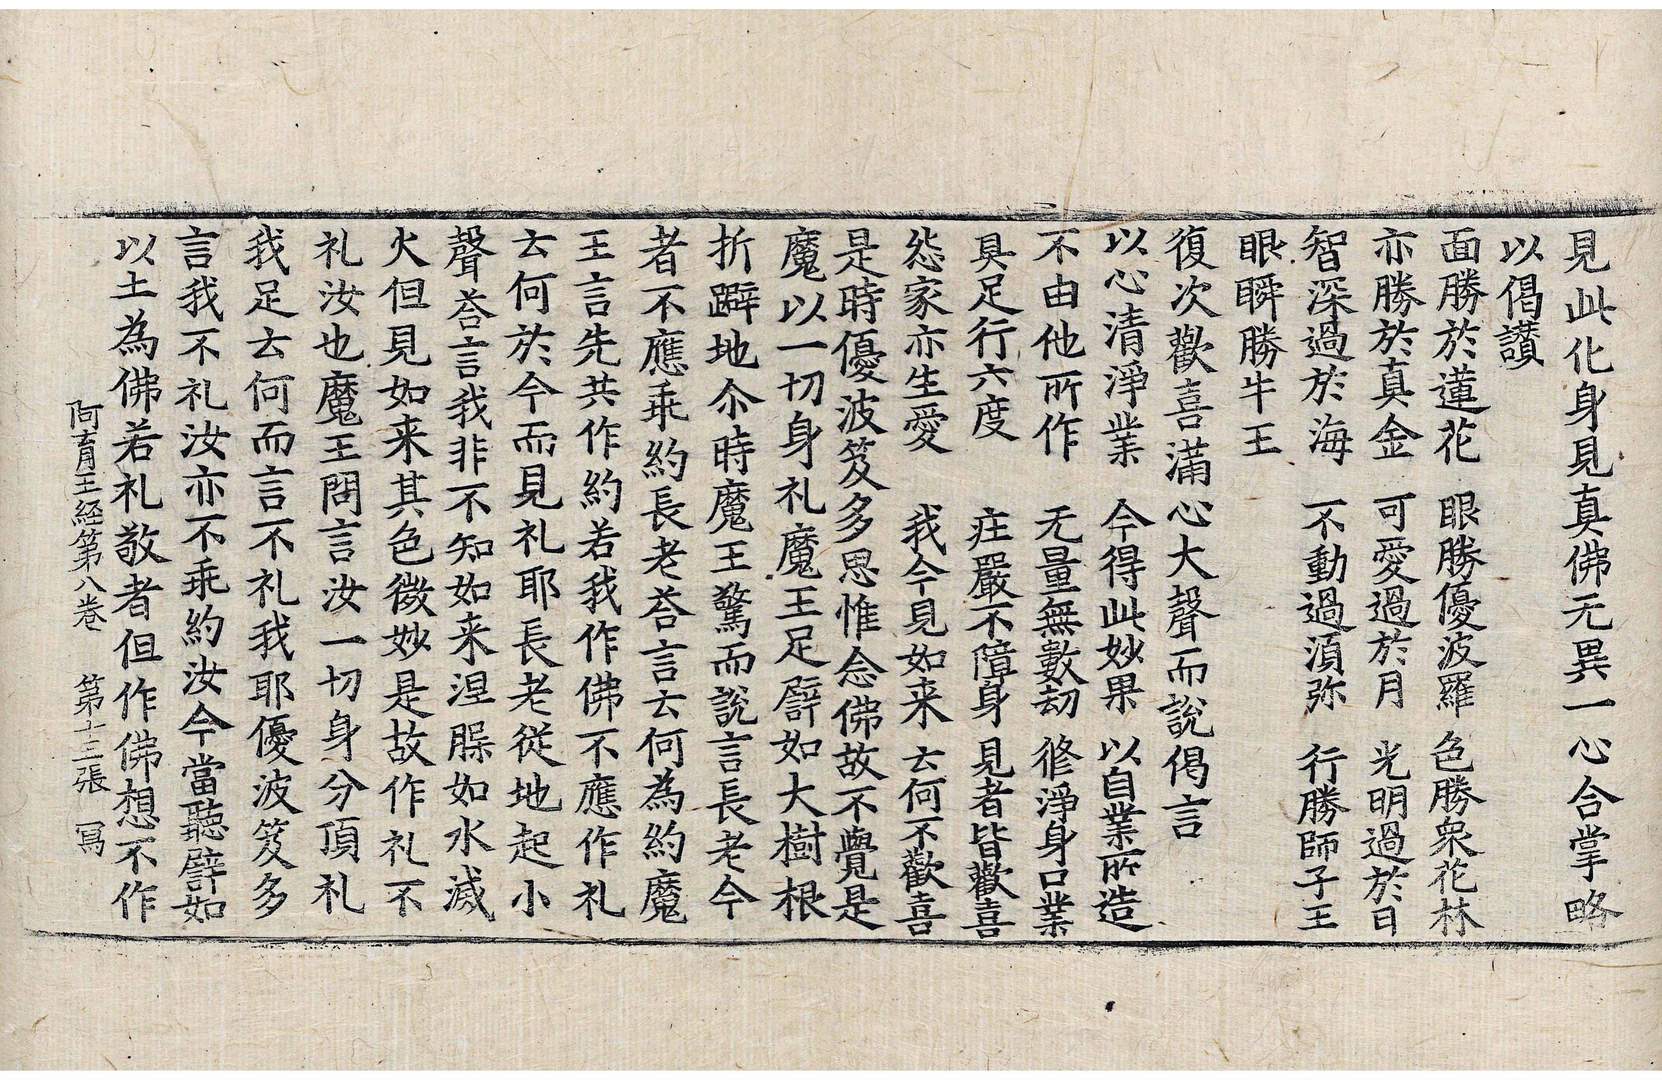 見此化身見真佛无異一心合掌略
以偈讃
面勝於蓮花　眼勝優波羅　色勝衆花林
亦勝於真金　可愛過於月　光明過於日
智深過於海　不動過湏弥　行勝師子王
眼瞬勝牛王
復次歡喜滿心大聲而說偈言
以心清淨業　今得此妙果　以自業所造
不由他所作　无量無數劫　修淨身口業
具足行六度　庄嚴不障身　見者皆歡喜
怨家亦生愛　我今見如来　云何不歡喜
是時優波笈多思惟念佛故不覺是
魔以一切身礼魔王足譬如大樹根
折躃地尒時魔王驚而說言長老今
者不應乖約長老荅言云何為約魔
王言先共作約若我作佛不應作礼
云何於今而見礼耶長老從地起小
聲荅言我非不知如来涅脲如水滅
火但見如来其色微妙是故作礼不
礼汝也魔王問言汝一切身分頂礼
我足云何而言不礼我耶優波笈多
言我不礼汝亦不乖約汝今當聽譬如
以土為佛若礼敬者但作佛想不作
阿育王経第八卷　第十三張　冩